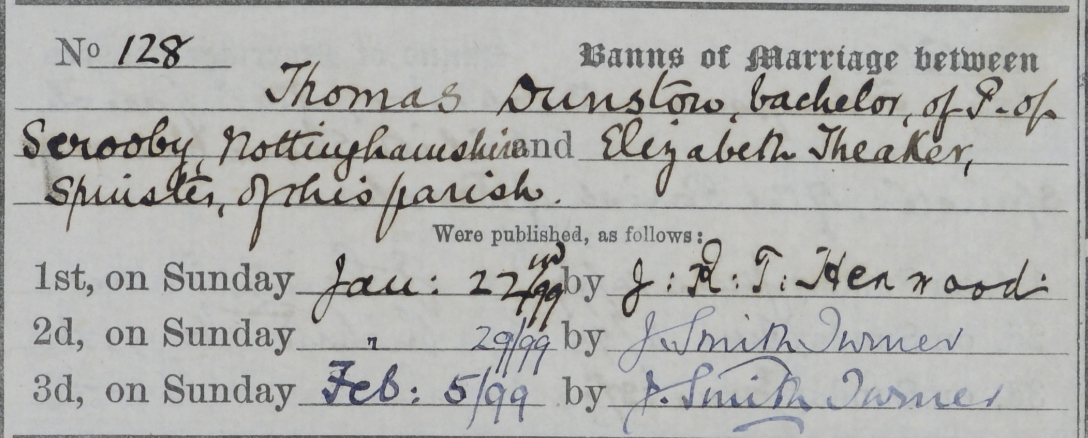 No 128 Banns of Marriage between
Thomas Dunstow, bachelor, of P. of
Scrooby, Nottinghamshire and Elizabeth Theaker,
Spinster, of this parish.
Were published, as follows:
1st, on Sunday Jan: 22nd/99 by J: R: T: Henwood:
2d, on Sunday " 29/99 by J. Smith Turner
3d, on Sunday Feb: 5/99 by J. Smith Turner